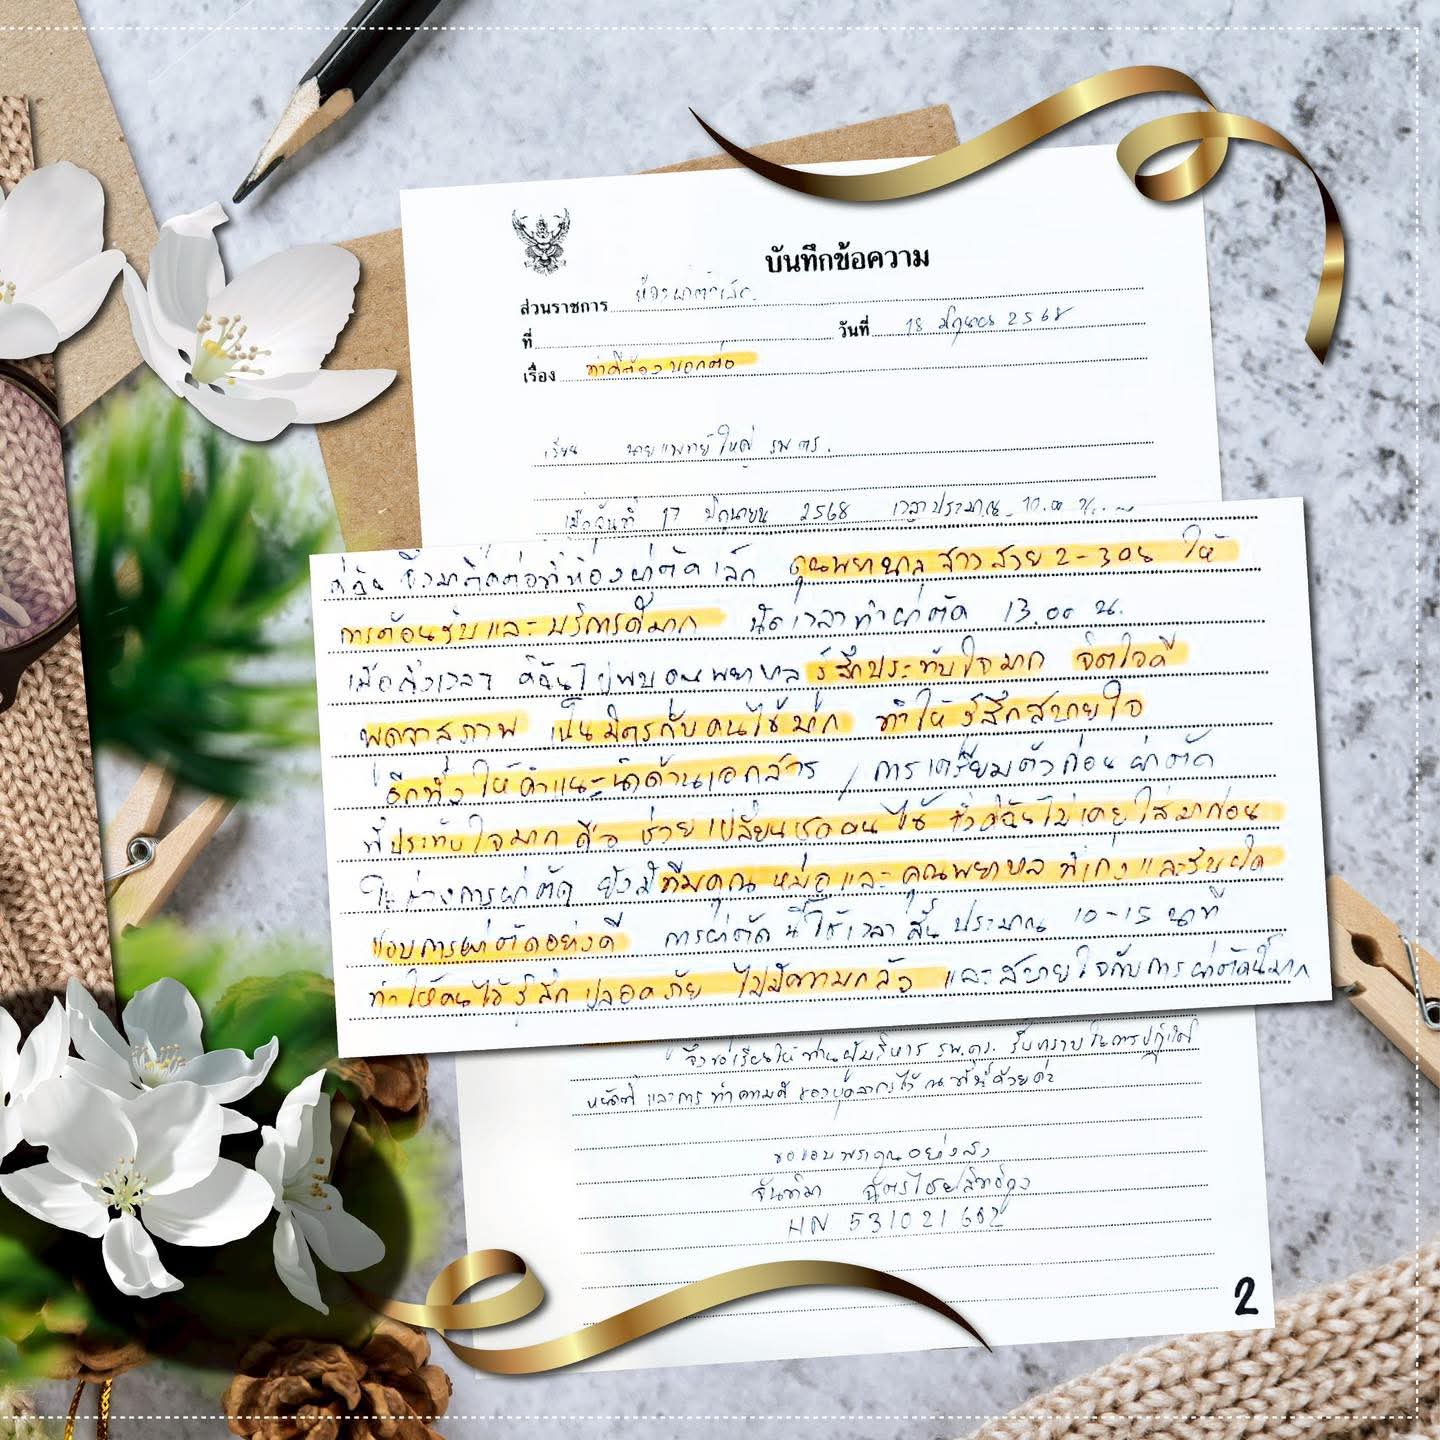 บันทึกข้อความ
ส่วนราชการ ห้องผ่าตัดเล็ก
ที่ วันที่ 18 มิถุนายน 2568
เรื่อง ทำดีต้องบอกต่อ
เรียน นายแพทย์ใหญ่ รพ.ตร.
เมื่อวันที่ 17 มิถุนายน 2568 เวลาประมาณ 10.00 น.
ดิฉัน ซึ่งมาติดต่อที่ห้องผ่าตัดเล็ก คุณพยาบาลสาวสวย 2-3 คน ให้
การต้อนรับและบริการดีมาก นัดเวลาทำผ่าตัด 13.00 น.
เมื่อถึงเวลา ดิฉันไปพบคุณพยาบาล รู้สึกประทับใจมาก จิตใจดี
พูดจาสุภาพ เป็นมิตรกับคนไข้มาก ทำให้รู้สึกสบายใจ
อีกทั้งให้คำแนะนำด้านเอกสาร / การเตรียมตัวก่อนผ่าตัด
ที่ประทับใจมาก คือ ช่วยเปลี่ยนชุดคนไข้ ซึ่งดิฉันไม่เคยใส่มาก่อน
ระหว่างการผ่าตัด ยังมีทีมคุณหมอและคุณพยาบาลที่เก่งและรับผิด
ชอบการผ่าตัดอย่างดี การผ่าตัดนี้ใช้เวลาสั้น ประมาณ 10-15 นาที
ทำให้คนไข้รู้สึกปลอดภัย ไม่มีความกลัว และสบายใจกับการผ่าตัดนี้มาก
จึงขอเรียนให้ท่านผู้บริหาร รพ.ตร. รับทราบในการปฏิบัติ
หน้าที่ และการทำความดี ของบุคลากรไว้ ณ ที่นี้ด้วยค่ะ
ขอขอบพระคุณอย่างสูง
จันทิมา
HN 531021602
2